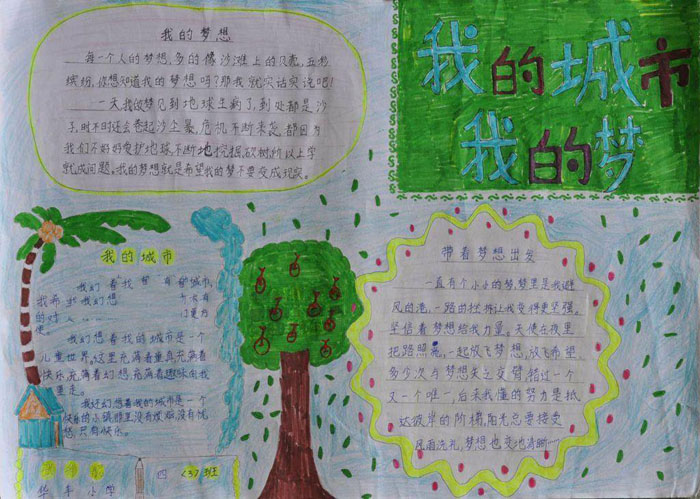 我的城市
我的梦
我的梦想
每一个人的梦想,多的像沙滩上的贝壳,五彩
缤纷,你想知道我的梦想吗?那我就实话实说吧!
一天我的梦见到地球生病了,到处都是沙
子,时不时还会卷起沙尘暴,危机不断来袭,都因为
我们不好好爱护地球,不断地挖掘,砍树所以上学
就成问题。我的梦想就是希望我的梦不要变成现实。
我的城市
我们
我希
的对
使。
我幻想着我的城市是一个
儿童世界,这里充满着童真,充满着
快乐,充满着幻想,充满着趣味
里走。
我还幻想着我的城市是一个
快乐的小镇,那里没有烦恼,没有忧
愁,只有快乐。
四 <3> 班
小学
带着梦想出发
一直有个小小的梦,梦里是我避
风的港,一路曲折让我变得更坚强。
坚信着梦想给我力量。天使在夜里
把路照亮,一起放飞梦想,放飞希望
多少次与梦想失之交臂,错过一个
又一个唯一,后来我懂的努力是抵
达彼岸的阶梯,阳光总要接受
风雨洗礼,梦想也变也清晰……